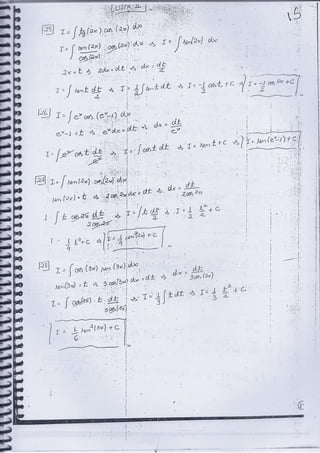 LISTA 2
15
25 I = ∫ tg(2x) cos(2x) dx
I = ∫ sen(2x)/cos(2x) cos(2x) dx → I = ∫ sen(2x) dx
2x = t → 2dx = dt → dx = dt/2
I = ∫ sen t dt/2 → I = 1/2 ∫ sen t dt → I = -1/2 cos t + C → I = -1/2 cos 2x + C
26 I = ∫ eˣ cos(eˣ-1) dx
eˣ-1 = t → eˣ dx = dt → dx = dt/eˣ
I = ∫ eˣ cos t dt/eˣ → I = ∫ cos t dt → I = sen t + C → I = sen(eˣ-1) + C
I = ∫ sen(2x) cos(2x) dx
sen(2x) = t → 2 cos 2x dx = dt → dx = dt/2cos 2x
∫ t cos 2x dt/2cos 2x → I = ∫ t dt/2 → I = 1/2 t²/2 + C
I = 1/4 t² + C → I = 1/4 sen²(2x) + C
I = ∫ cos(3x) sen(3x) dx
sen(3x) = t → 3 cos(3x) dx = dt → dx = dt/3cos(3x)
I = ∫ cos(3x) . t . dt/3cos(3x) → I = 1/3 ∫ t dt → I = 1/3 t²/2 + C
I = 1/6 sen²(3x) + C